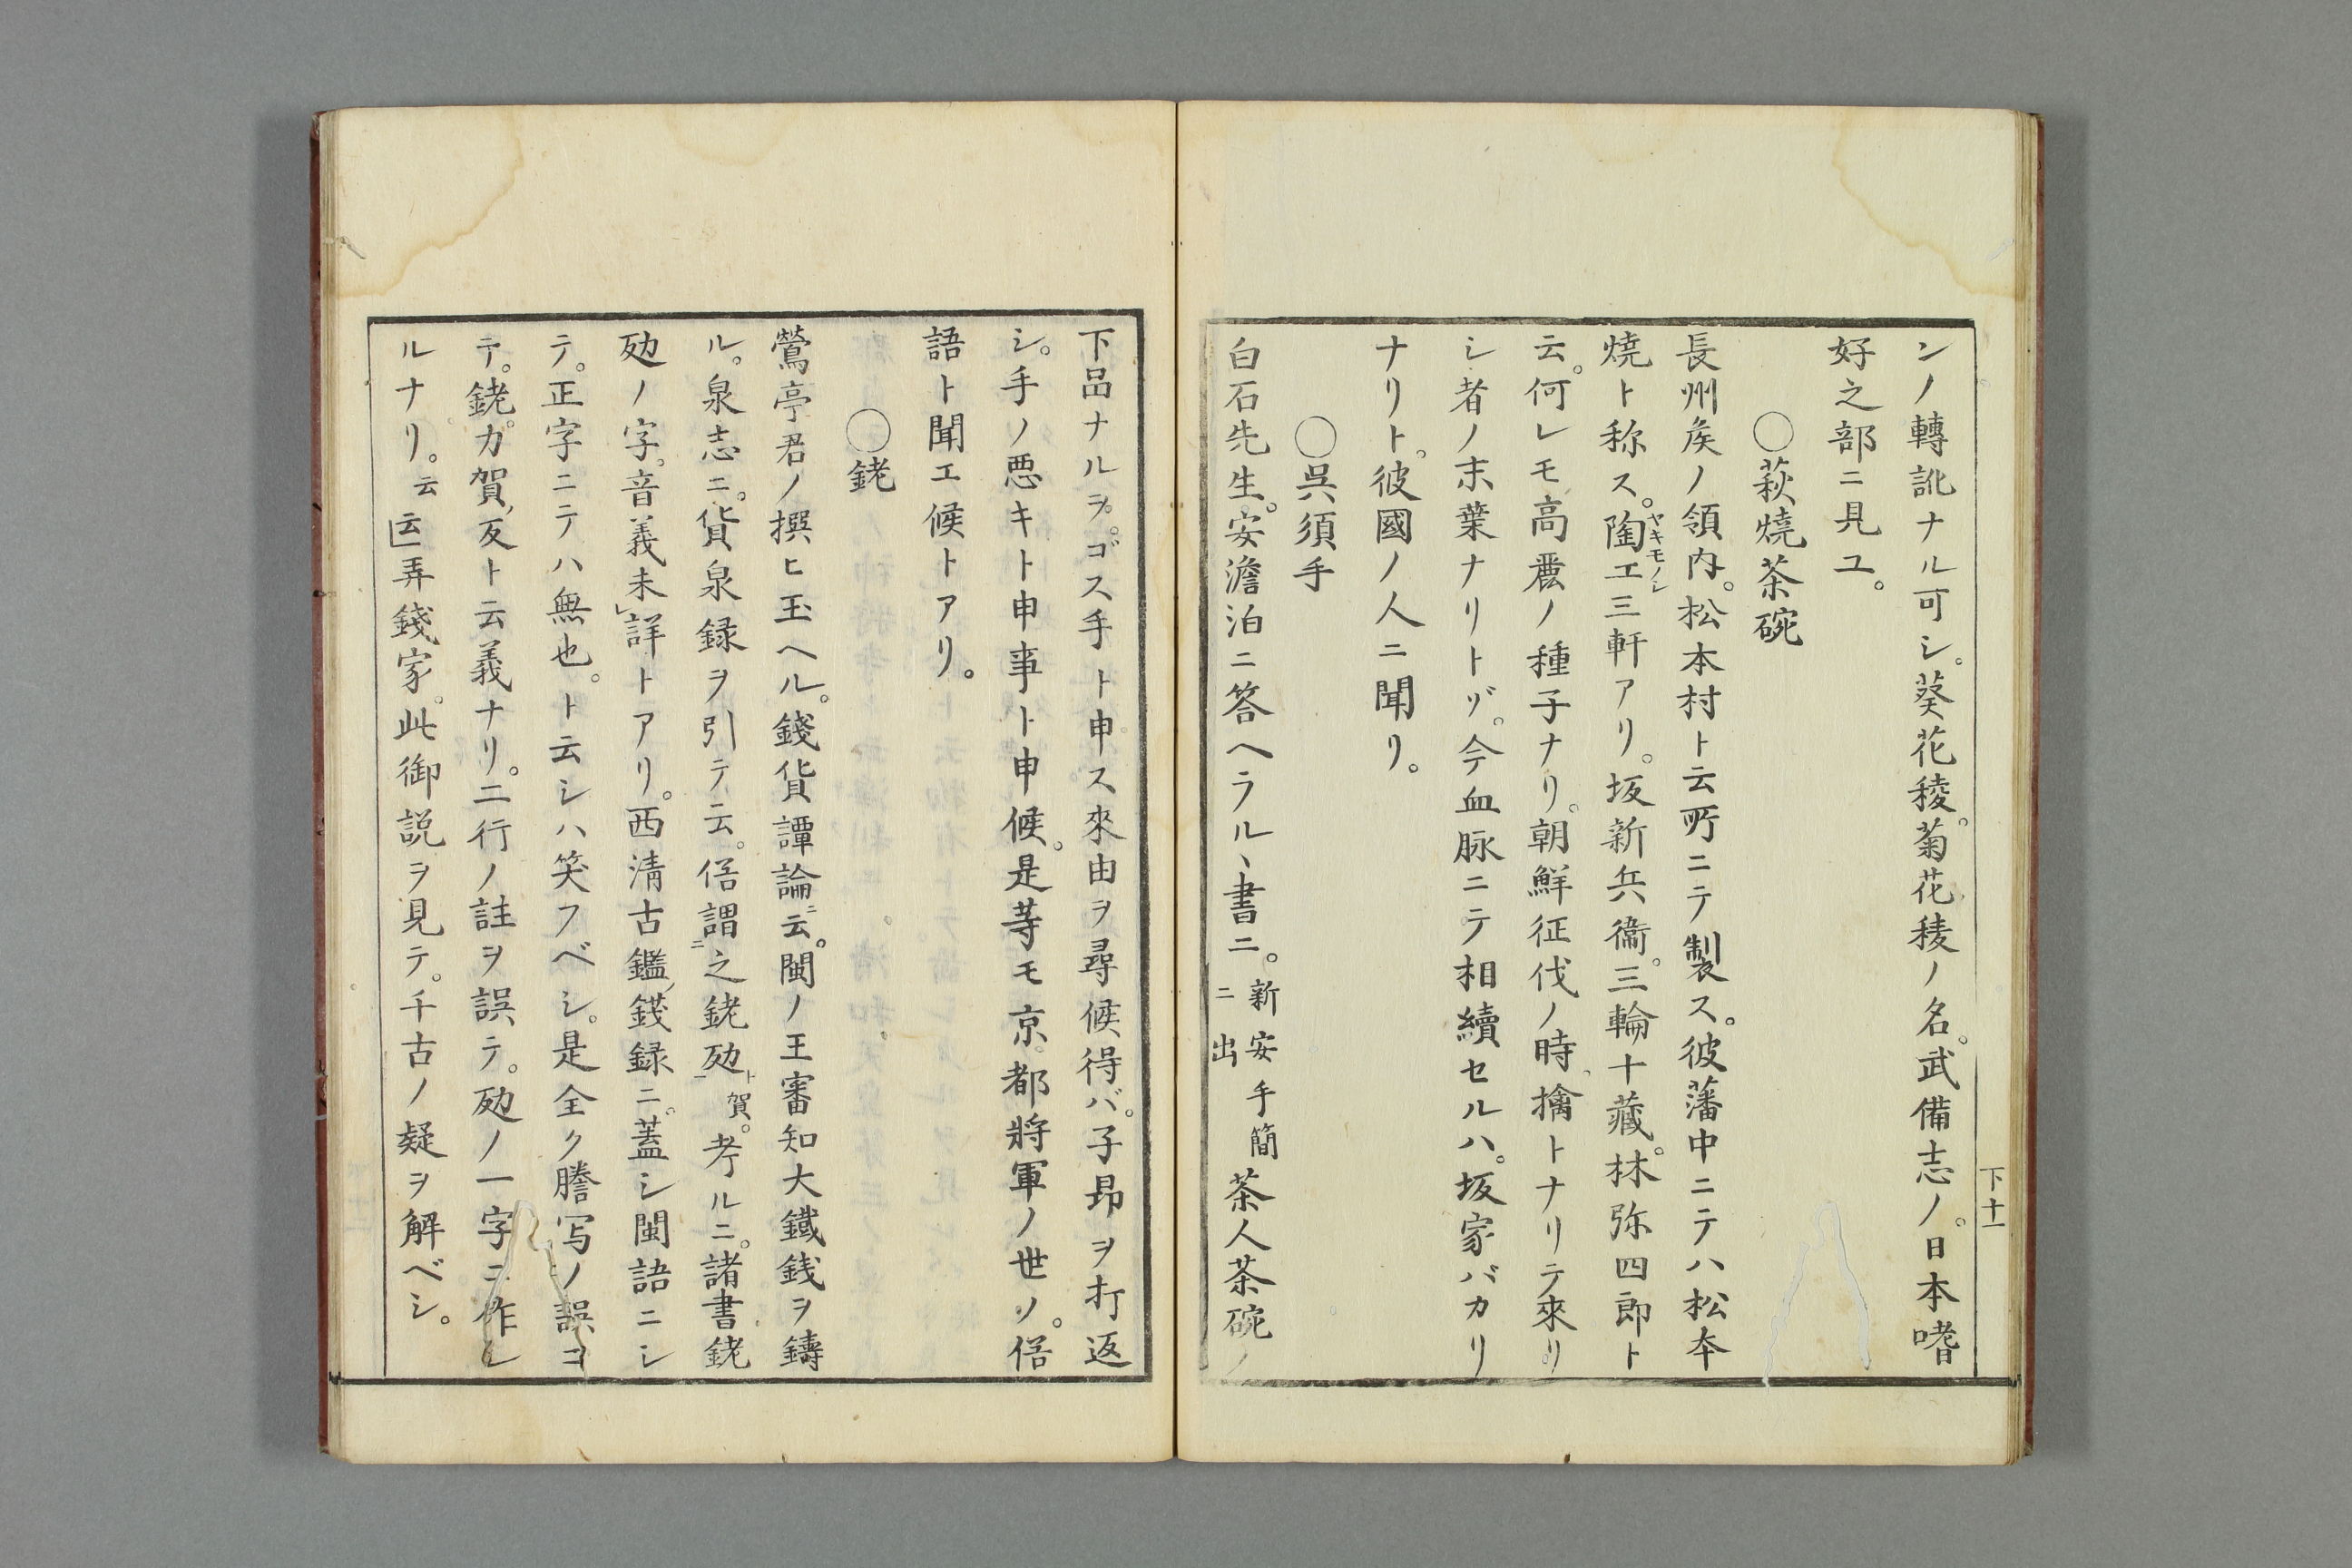 ンノ轉訛ナル可シ。葵花稜。菊花稜ノ名。武備志ノ。日本嗜
好之部ニ見ユ。
〇萩燒茶碗
長州矦ノ領内。松本村ト云所ニテ製ス。彼藩中ニテハ松本
燒ト称ス。陶工三軒アリ。坂新兵衞。三輪十藏。林弥四郎ト
ヤキモノシ
云。何レモ高麗ノ種子ナリ。朝鮮征伐ノ時、擒トナリテ來リ
シ者ノ末葉ナリトゾ。今血脉ニテ相續セルハ。坂家バカリ
ナリト。彼國ノ人ニ聞リ。
〇呉須手
白石先生。安澹泊ニ答ヘラル丶書ニ。新安手簡ニ出茶人茶碗ノ
下十一
下品ナルヲ。ゴス手ト申ス來由ヲ尋候得バ。子昻ヲ打返
シ。手ノ悪キト申事ト申候。是等モ京都將軍ノ世ノ。俗
語ト聞エ候トアリ。
〇銠
鶯亭君ノ撰ヒ玉ヘル。錢貨譚論ニ云。閩ノ王審知大鐵銭ヲ鑄
ル。泉志ニ。貨泉録ヲ引テ云。俗謂之銠㔢ト賀。考ルニ。諸書銠
㔢ノ字。音義未詳トアリ。西清古鑑、錢録ニ。蓋シ閩語ニシ
テ。正字ニテハ無也。ト云シハ笑フベシ。是全ク謄写ノ誤ヨ
テ。銠。力賀反ト云義ナリ。二行ノ註ヲ誤テ。㔢ノ一字ニ作レ
ルナリ。云云弄錢家。此御説ヲ見テ。千古ノ疑ヲ解ベシ。